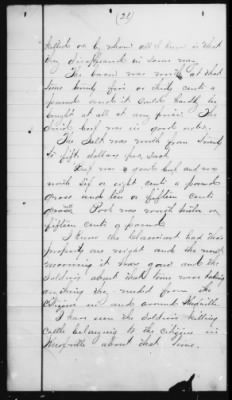 (25)
killed or by whom all I know is that
they disappeared in some way.
The bacon was worth at that
time twenty five or thirty cents a
pound and it could hardly be
bought at all at any price. The
dried beef was in good order.
The Salt was worth from twenty
to fifty dollars per Sack
Beef was good beef and was
worth six or eight cents a pound
gross and ten or fifteen cents
Pork was worth twelve or
fifteen cents a pound
I know the Claimant had this
property one night and the next
morning it was gone and the
Soldiers about that time were taking
anything they needed from the
Citizens in and around
I have seen the Soldiers killing
cattle belonging to the citizens in
about that time.